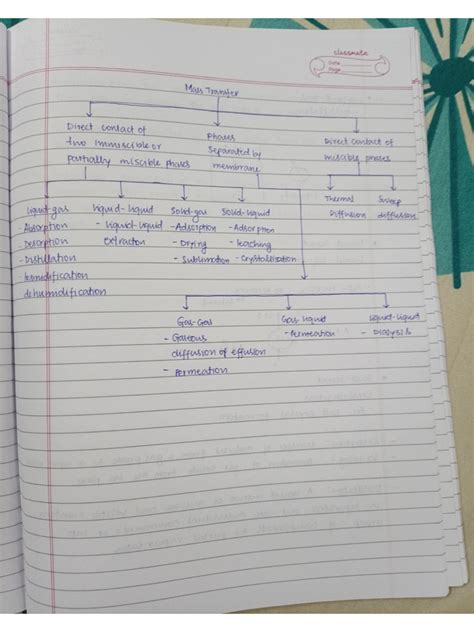 classmate
Date
Page
Mass Transfer
Direct contact of
two immiscible or
partially miscible phases
Phases
separated by
membrane
Direct contact of
miscible phases
Thermal
Diffusion
Sweep
diffusion
liquid-gas
- Absorption
- Desorption
- Distillation
- humidification
dehumidification
liquid-liquid
- liquid-liquid
extraction
Solid-gas
- Adsorption
- Drying
- Sublimation
Solid-liquid
- Adsorption
- leaching
- Crystallization
Gas-Gas
- Gaseous
diffusion of effusion
- Permeation
Gas liquid
- Permeation
liquid-liquid
- Dialysis